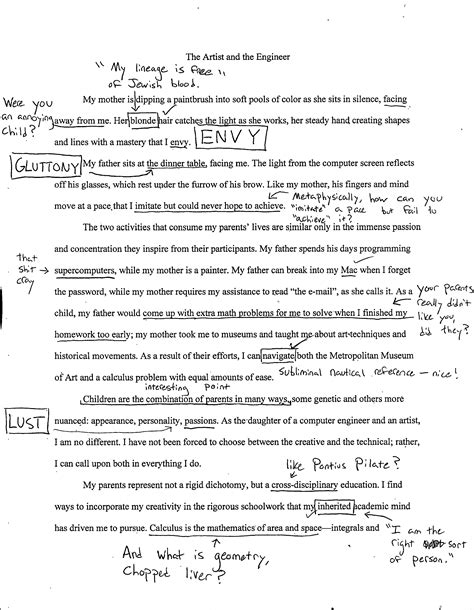 The Artist and the Engineer
"My lineage is free"
of Jewish blood.
Were you
an annoying
child?
My mother is dipping a paintbrush into soft pools of color as she sits in silence, facing
away from me. Her blonde hair catches the light as she works, her steady hand creating shapes
and lines with a mastery that I envy.
ENVY
GLUTTONY
My father sits at the dinner table, facing me. The light from the computer screen reflects
off his glasses, which rest under the furrow of his brow. Like my mother, his fingers and mind
move at a pace that I imitate but could never hope to achieve.
Metaphysically, how can you
"imitate" a pace but fail to
"achieve" it?
The two activities that consume my parents' lives are similar only in the immense passion
and concentration they inspire from their participants. My father spends his days programming
that
shit
cray
supercomputers, while my mother is a painter. My father can break into my Mac when I forget
the password, while my mother requires my assistance to read "the e-mail", as she calls it. As a
child, my father would come up with extra math problems for me to solve when I finished my
homework too early; my mother took me to museums and taught me about art techniques and
your parents
really didn't
like you,
did they?
historical movements. As a result of their efforts, I can navigate both the Metropolitan Museum
of Art and a calculus problem with equal amounts of ease.
Subliminal nautical reference – nice!
interesting point
Children are the combination of parents in many ways, some genetic and others more
LUST
nuanced: appearance, personality, passions. As the daughter of a computer engineer and an artist,
I am no different. I have not been forced to choose between the creative and the technical; rather,
I can call upon both in everything I do.
like Pontius Pilate?
My parents represent not a rigid dichotomy, but a cross-disciplinary education. I find
ways to incorporate my creativity in the rigorous schoolwork that my inherited academic mind
has driven me to pursue. Calculus is the mathematics of area and space—integrals and
"I am the
right sort
of person."
And what is geometry,
Chopped liver?